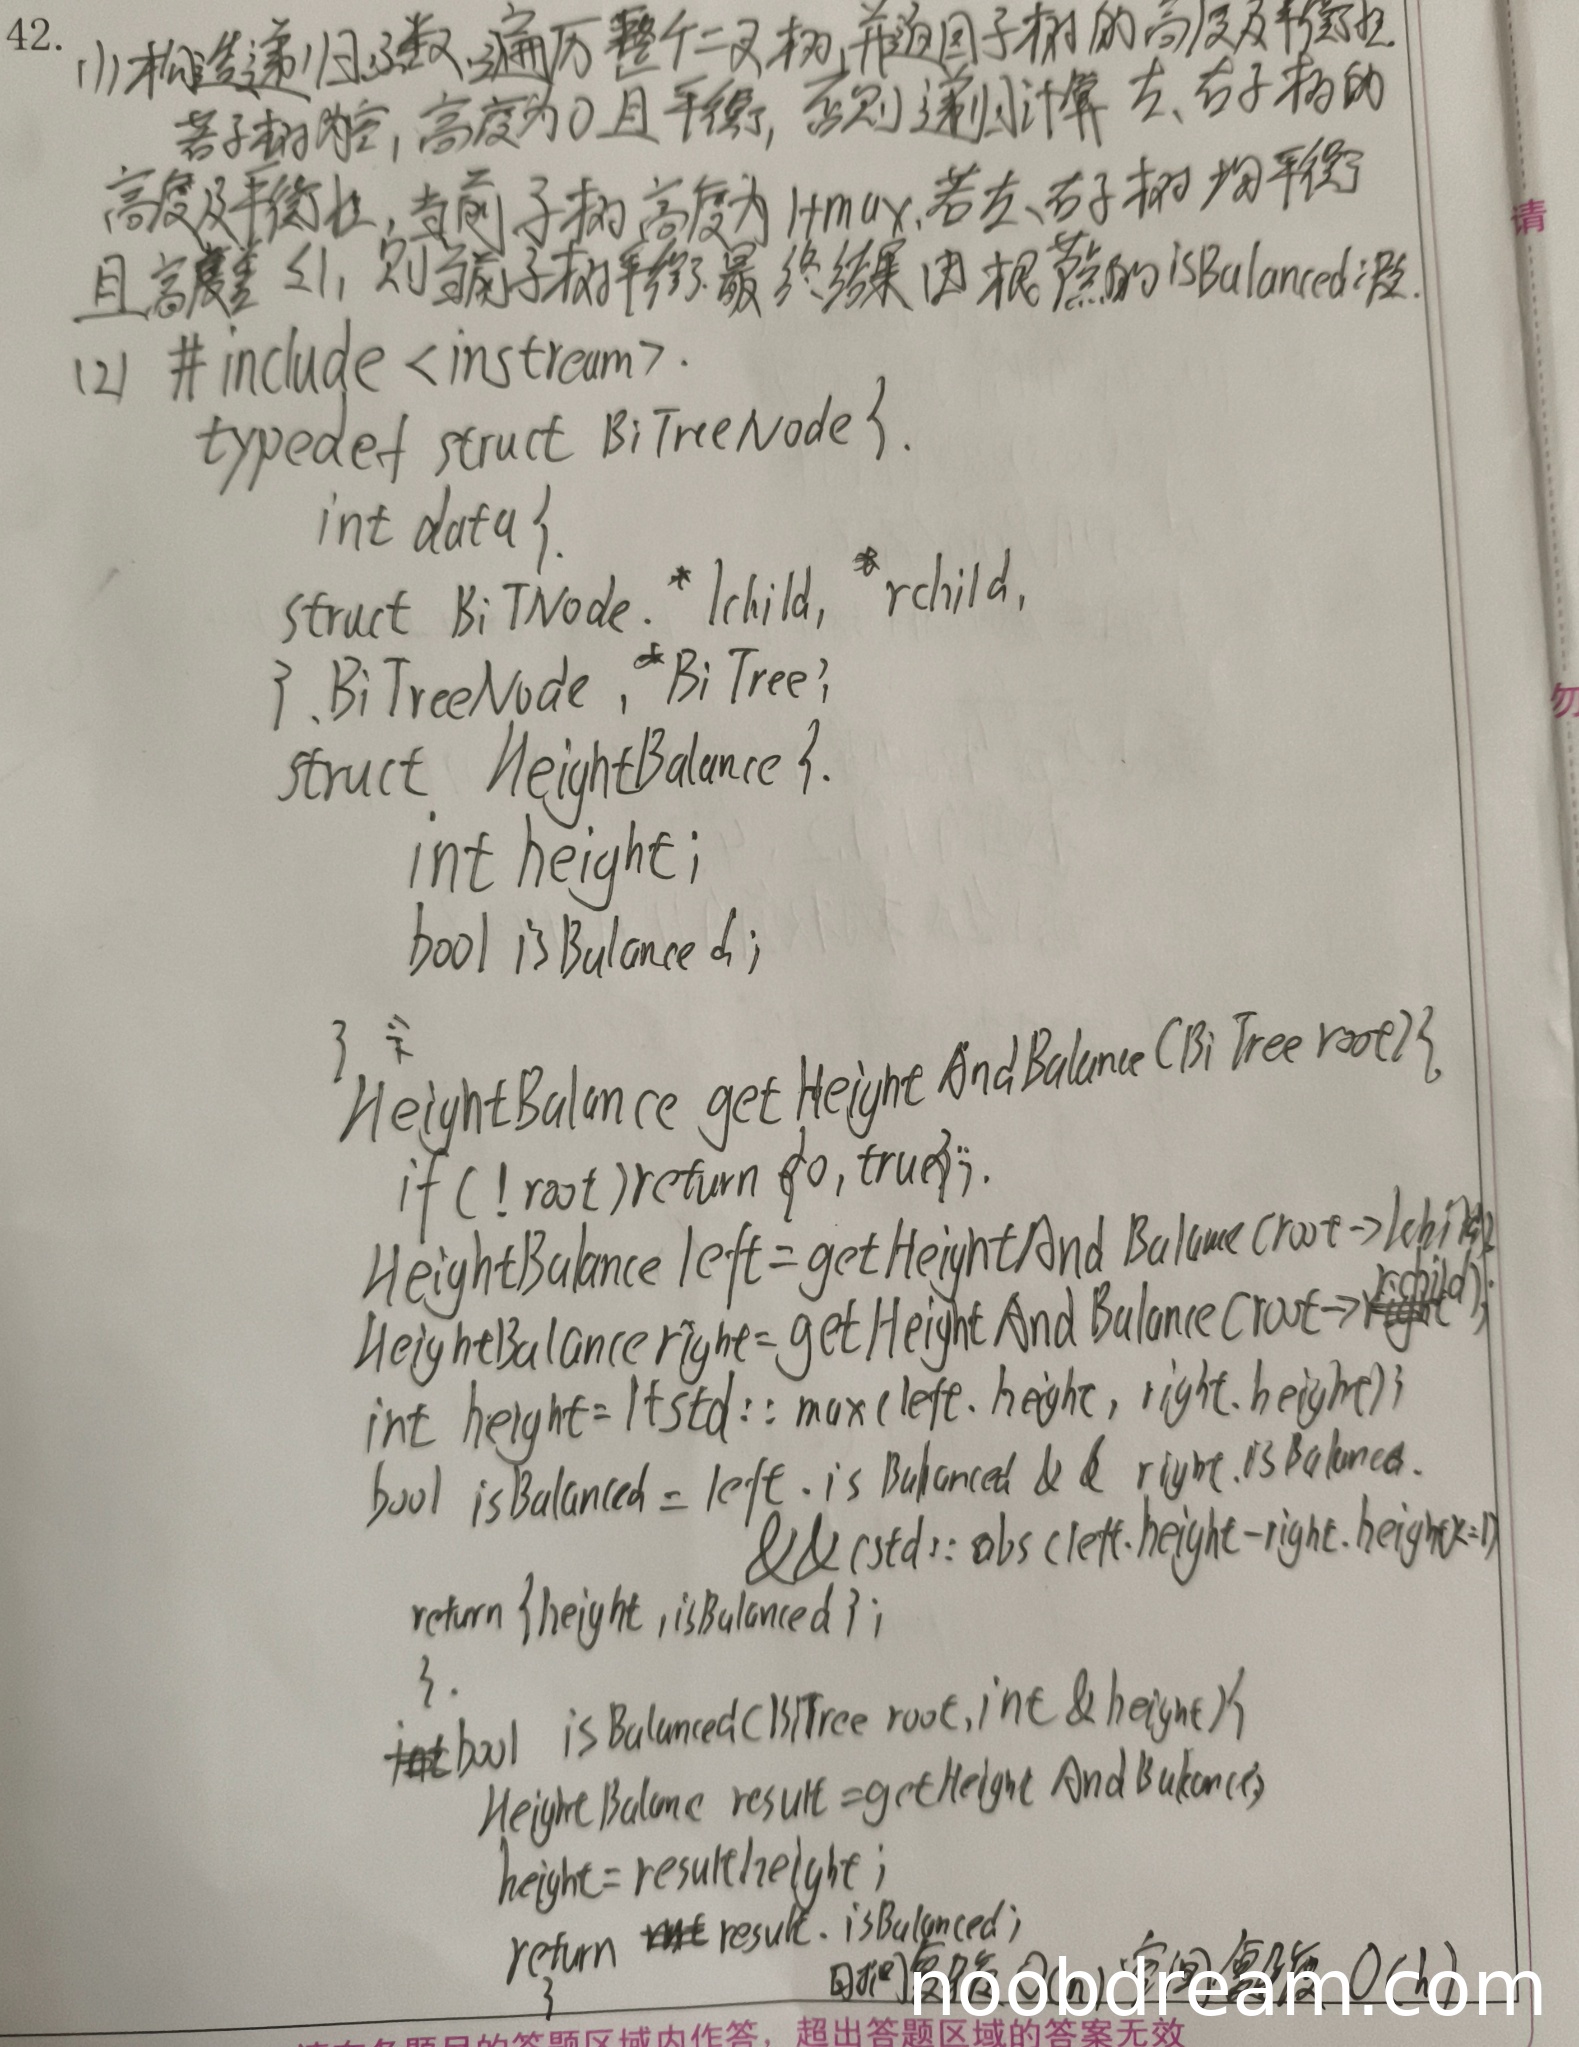 42.
(1) 构造递归函数,遍历整个二叉树,并返回子树的高度及平衡性.
若子树为空,高度为0且平衡,否则递归计算左、右子树的
高度及平衡性,当前子树高度为1+max.若左、右子树均平衡
且高度差≤1,则当前子树平衡.最终结果由根节点的isBalanced决定.
(2) #include <instream>.
typedef struct BiTreeNode{.
int data{.
struct BiTNode. *lchild, *rchild,
}.BiTreeNode, *BiTree;
struct HeightBalance{.
int height;
bool isBalanced;
}
HeightBalance getHeightAndBalance(BiTree root){
if(!root)return {0,true};.
HeightBalance left=getHeightAndBalance(root->lchild);
HeightBalance right=getHeightAndBalance(root->rchild);
int height=1+std::max(left.height, right.height);
bool isBalanced=left.isBalanced && right.isBalanced.
&&(std::abs(left.height-right.height)<=1)
return {height,isBalanced};
}.
bool isBalanced(BiTree root,int &height){
HeightBalanc result=getHeightAndBalance;
height=resultheight;
return result.isBalanced;
}
时间复杂度O(n) 空间复杂度O(h)
noobdream.com
请在各题目的答题区域内作答,超出答题区域的答案无效
请
勿